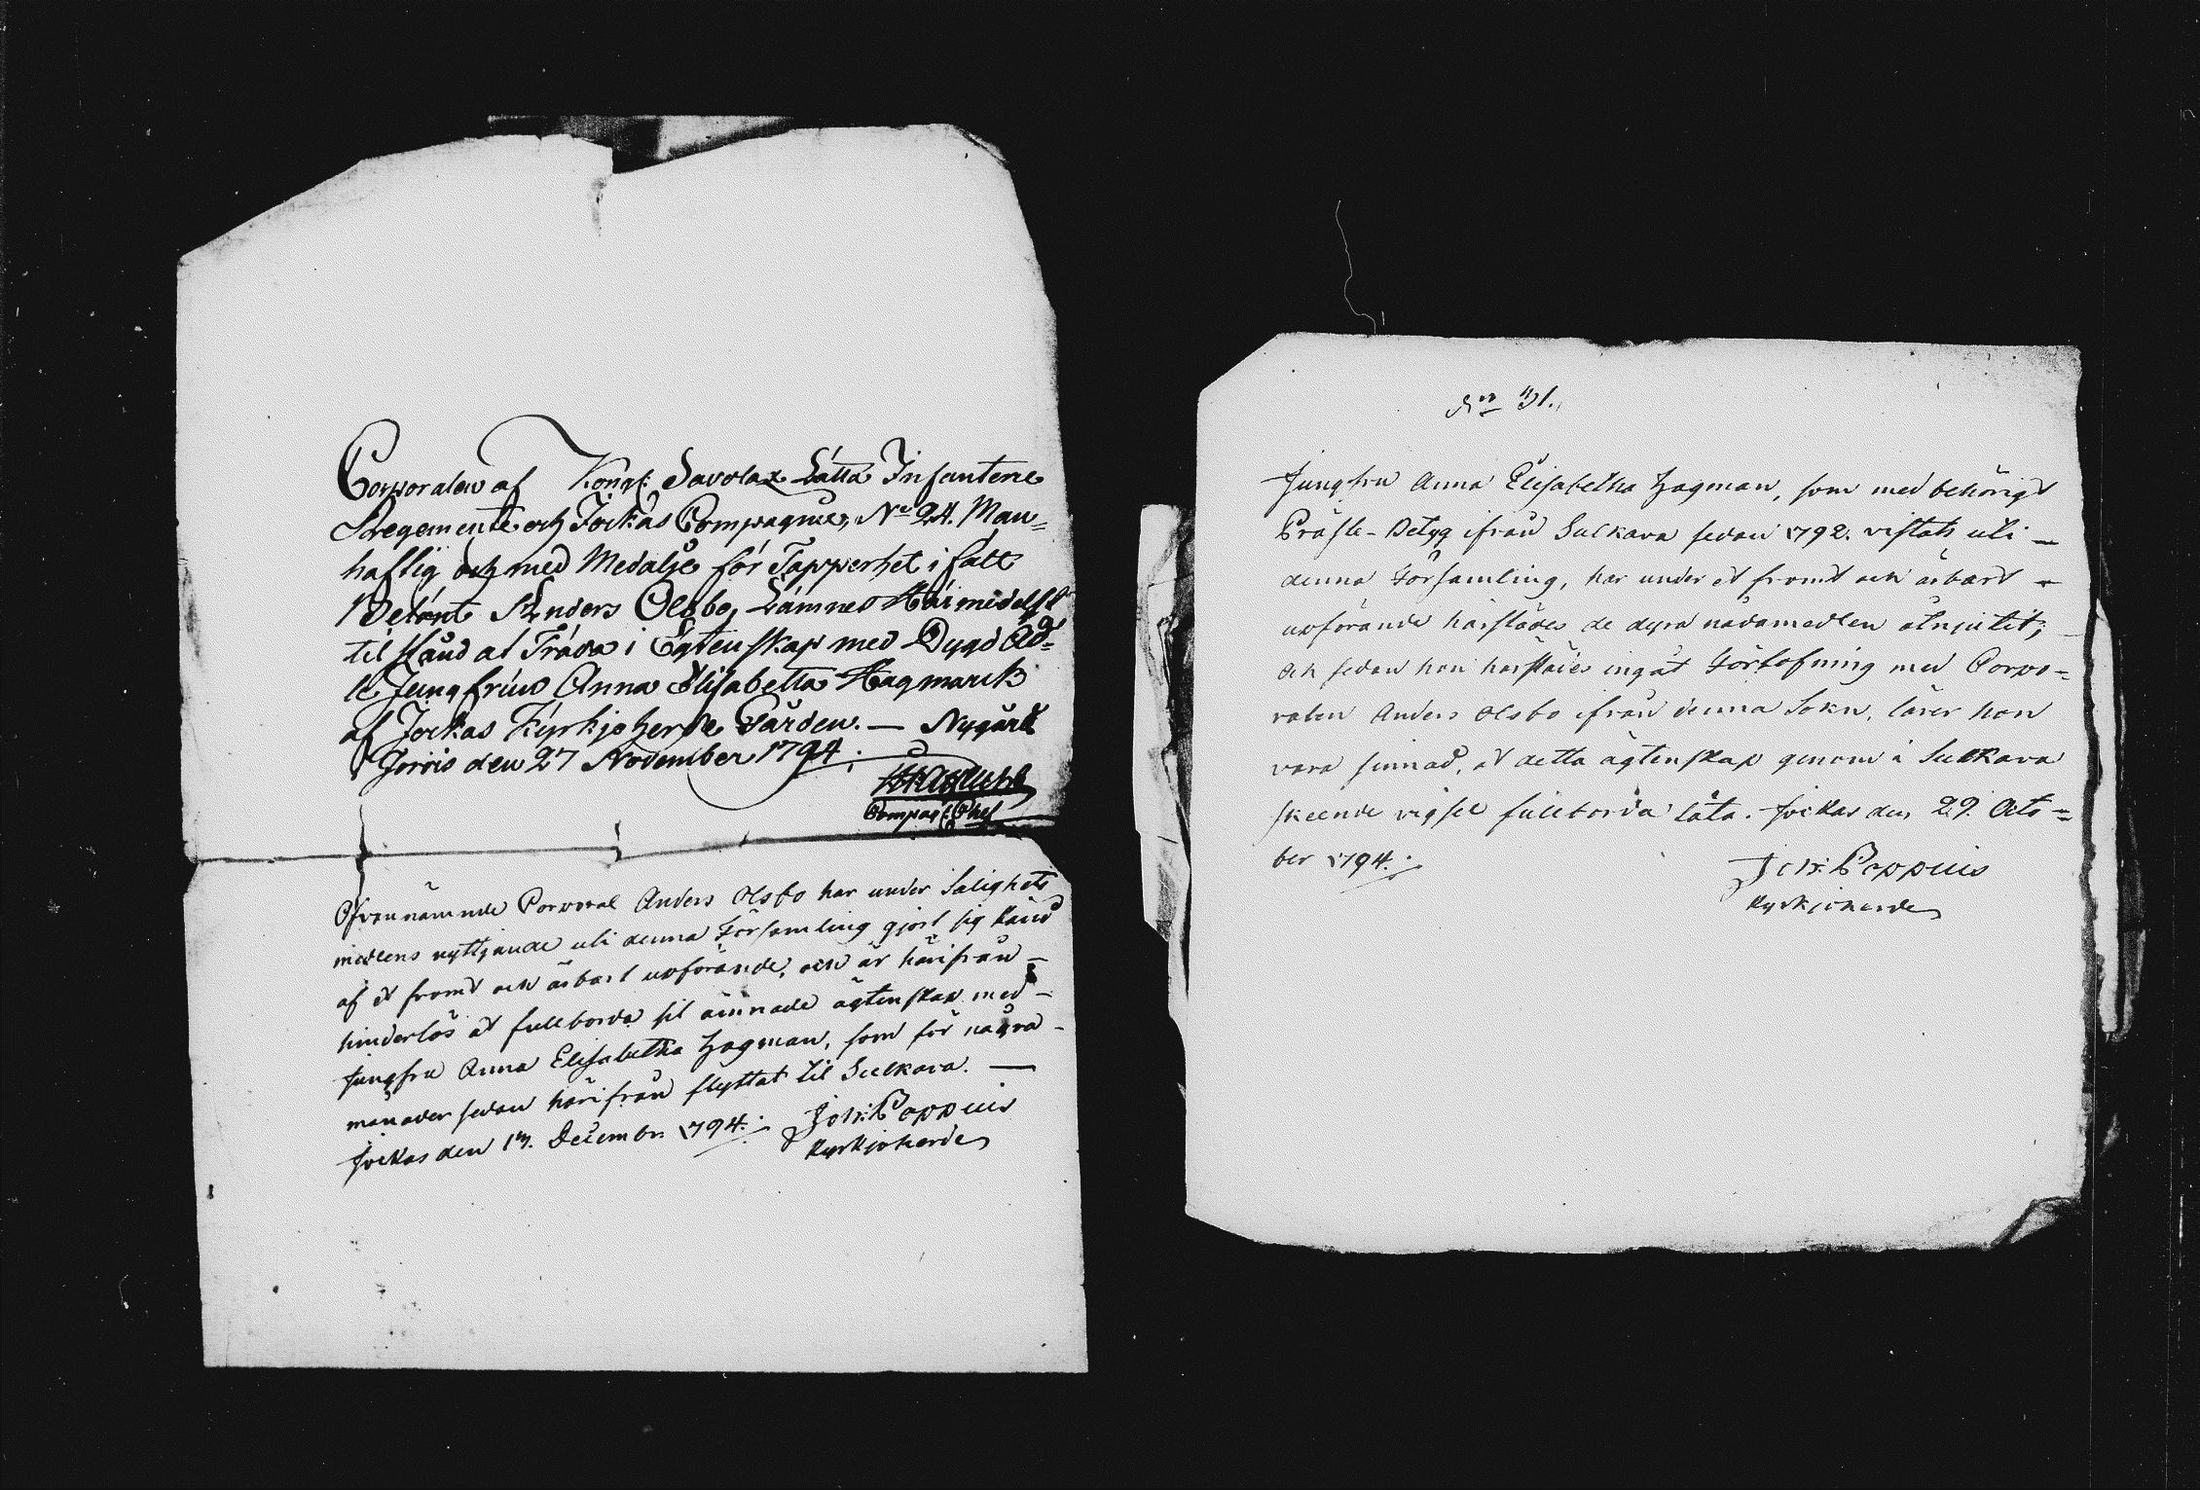 Corporalen af Kongl. Savolax Lätta Infanterie
Regemente och Jockas Compagnie, No 24. Man=
haftig och med Medalje för Tapperhet i fält
Belönt Anders Olsbo, Lämnes Härmedelst
tilstånd at Träda i Egtenskap med Dygd Äd=
le Jungfrun Anna Elisabetta Hagmark
af Jockas Kyrkjo Herde Gården. — Nygård
Jorois den 27 November 1794.
Compag: Chef
Ofvannämnde Corporal Anders Olsbo har under Salighets
medlens nyttjande uti denna Församling gjort sig känd
af et fromt och ärbart upförande, och är härifrån —
hinderlös at fullborda sit ämnade ägtenskap med —
Jungfru Anna Elisabetha Hagman, som för några —
månader sedan härifrån flyttat til Sulkava. —
Jockas den 17. Decembr. 1794.
Joh: Poppius
Kyrkjoherde
No 31.
Jungfru Anna Elisabetha Hagman, som med behörigt
Präste-Betyg ifrån Sulkava sedan 1792. vistats uti —
denna Församling, har under et fromt och ärbart —
upförande härstädes de dyra nådamedlen åtnjutit;
och sedan hon härstädes ingåt Förlofning med Corpo=
ralen Anders Olsbo ifrån denna Sokn, lärer hon
vara sinnad, at detta ägtenskap genom i Sulkava
skeende vigsel fullborda låta. Jockas den 29. Octo=
ber 1794.
Joh: Poppius
Kyrkjoherde